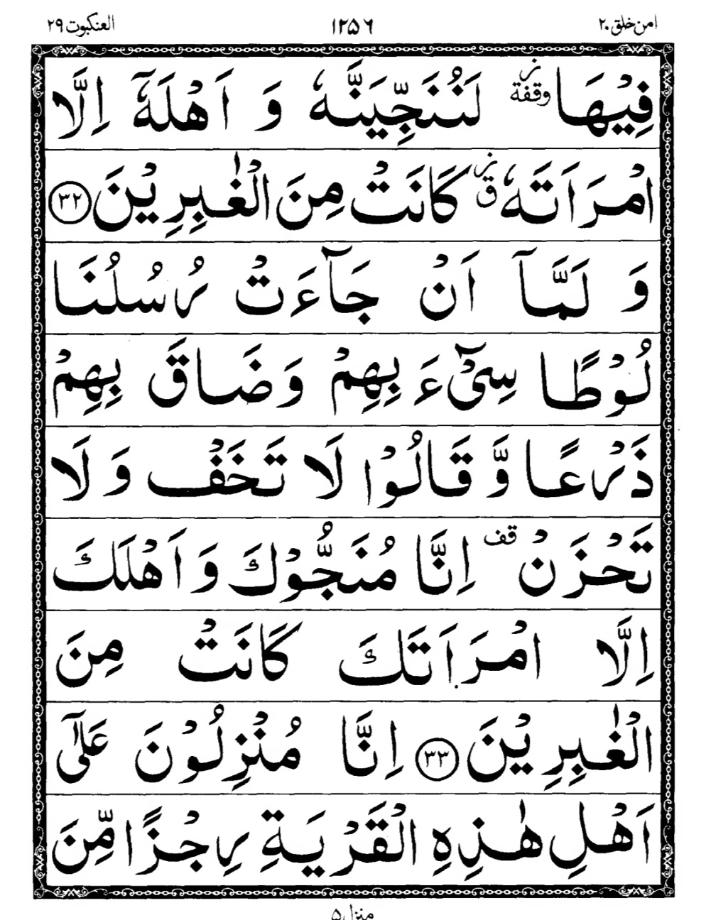 امن خلق ۲۰ ۱۲۵۶ العنکبوت ۲۹
فِيْهَا وقفة ز لَنُنَجِّيَنَّهٗ وَ اَهْلَهٗۤ اِلَّا
امْرَاَتَهٗ ق ز كَانَتْ مِنَ الْغٰبِرِيْنَ ۳۲
وَ لَمَّاۤ اَنْ جَآءَتْ رُسُلُنَا
لُوْطًا سِیْٓءَ بِهِمْ وَضَاقَ بِهِمْ
ذَرْعًا وَّ قَالُوْا لَا تَخَفْ وَ لَا
تَحْزَنْ قف اِنَّا مُنَجُّوْكَ وَ اَهْلَكَ
اِلَّا امْرَاَتَكَ كَانَتْ مِنَ
الْغٰبِرِيْنَ ۳۳ اِنَّا مُنْزِلُوْنَ عَلٰۤى
اَهْلِ هٰذِهِ الْقَرْيَةِ رِجْزًا مِّنَ
منزل ۵